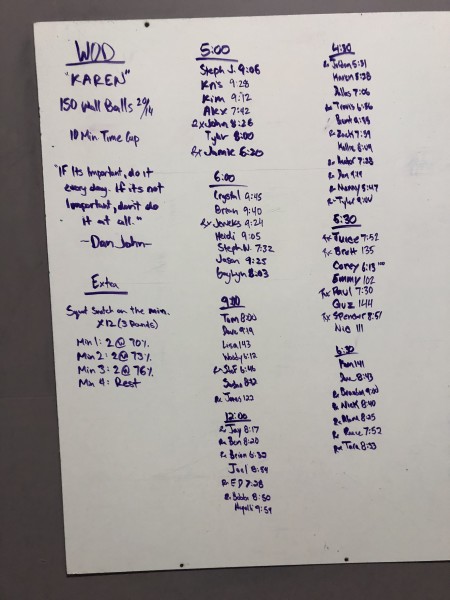 WOD
"KAREN"
150 Wall Balls 20/14
10 Min Time Cap
"If Its Important, do it
every day. If its not
Important, don't do
it at all."
-Dan John-
Extra
Squat Snatch on the min.
x12 (3 Rounds)
Min 1: 2 @ 70%
Min 2: 2 @ 73%
Min 3: 2 @ 76%
Min 4: Rest
5:00
Steph J. 9:06
Kris 9:28
Kim 9:12
Alex 7:42
Rx John 8:26
Tyler 8:00
Rx Jamie 6:20
6:00
Crystal 9:45
Brian 9:40
9:24
Heidi 9:05
Steph W. 7:32
Jason 9:25
8:03
9:00
Tom 8:00
Dave 9:19
Lisa 143
Woody 6:12
6:46
Rx Jones 122
12:00
Rx Jay 8:17
Rx Ben 8:20
Rx Brian 6:32
Joel 8:54
Rx ED 7:28
Rx Bobbi 8:50
9:54
4:30
5:31
Karen 8:28
7:06
Rx Travis 6:56
Rx Zach 7:59
7:28
Rx Dan 9:14
8:47
Rx Tyler
5:30
7:52
Rx Brett 135
Corey 6:13
Emmy 102
Rx Paul 7:30
Guz 144
Rx Spencer 8:51
Nic 111
6:30
Pam 141
8:43
Rx Brandon 9:00
Rx Nick 8:40
8:25
7:52
Rx Tara 8:33